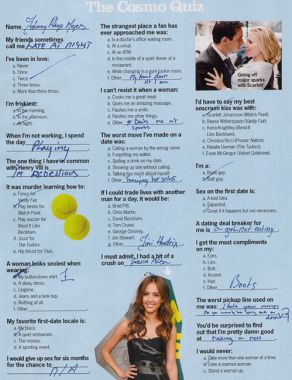 The Cosmo Quiz
Name
My friends sometimes
call me LATE At NIGHT
I've been in love:
a. Never.
b. Once.
c. Twice.
d. Three times.
e. More than three times.
I'm friskiest:
a. In the morning.
b. In the afternoon.
c. At night.
When I'm not working, I spend
the day Playing
The one thing I have in common
with Henry VIII is
I'M Rebellious
It was murder learning how to:
a. Fence for
Vanity Fair
b. Play tennis for
Match Point.
c. Play soccer for
Bend It Like
Beckham.
d. Joust for
The Tudors.
e. Hip thrust for Elvis.
A woman looks sexiest when
wearing:
a. My button-down shirt.
b. A slinky dress.
c. Lingerie.
d. Jeans and a tank top.
e. Nothing at all.
f. Other
My favorite first-date locale is:
a. My place.
b. A quiet restaurant.
c. The movies.
d. A sporting event.
I would give up sex for six months
for the chance to
N/A
The strangest place a fan has
ever approached me was:
a. In a doctor's office waiting room.
b. At a urinal.
c. At an ATM.
d. In the middle of a quiet dinner at a
restaurant.
e. While changing in a gym locker room.
f. Other
I can't resist it when a woman:
a. Cooks me a great meal.
b. Gives me an amazing massage.
c. Flashes me a smile.
d. Flashes me other things.
e. Other
sports
The worst move I've made on a
date was:
a. Calling a woman by the wrong name.
b. Forgetting my wallet.
c. Spilling a drink on my date.
d. Showing up late without calling.
e. Talking too much about myself.
f. Other
If I could trade lives with another
man for a day, it would be:
a. Brad Pitt.
b. Chris Martin.
c. David Beckham.
d. Tom Cruise.
e. George Clooney.
f. Jon Stewart.
g. Other Jimi Hendrix
I must admit, I had a bit of a
crush on
Giving off
major sparks
with Scarlett
I'd have to say my best
onscreen kiss was with:
a. Scarlett Johansson (Match Point).
b. Reese Witherspoon (Vanity Fair).
c. Keira Knightley (Bend It
Like Beckham).
d. Christina Ricci (Prozac Nation).
e. Natalie Dormer (The Tudors).
f. Ewan McGregor (Velvet Goldmine).
I'm a:
a. Boob guy.
b. Butt guy.
Sex on the first date is:
a. A bad idea.
b. Expected.
c. Great if it happens but not necessary.
A dating deal breaker for
me is a girl not eating
I get the most compliments
on my:
a. Eyes.
b. Lips.
c. Butt.
d. Accent.
e. Hair.
f. Other Boots
The worst pickup line used on
me was:
You'd be surprised to find
out that I'm pretty damn good
at
I would never:
a. Date more than one woman at a time.
b. Date a married woman.
c. Stand a woman up.